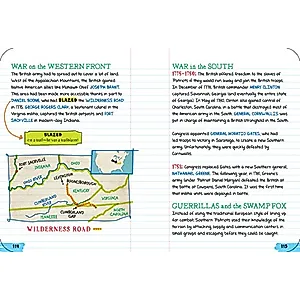 WAR on the WESTERN FRONT
The British army had to spread out to cover a lot of land.
West of the Appalachian Mountains, the British gained
native American allies like Mohawk Chief JOSEPH BRANT.
This area had been made more accessible thanks in part to
DANIEL BOONE, who had BLAZED the WILDERNESS ROAD
in 1775. GEORGE ROGERS CLARK, a lieutenant colonel in the
Virginia militia, captured the British outposts and FORT
SACKVILLE in modern-day Indiana.
BLAZED
FORT SACKVILLE
OHIO RIVER
VIRGINIA
LEXINGTON
BOONESBOROUGH
KENTUCKY
CUMBERLAND
GAP
TENNESSEE
NORTH
CAROLINA
WILDERNESS ROAD
114
WAR in the SOUTH
1778-1780: The British offered freedom to the slaves of
Patriots if they would run away and join the British army.
In December 1778, British commander HENRY CLINTON
captured Savannah, Georgia (and eventually the entire state of
Georgia). In May of 1780, Clinton also gained control of
Charleston, South Carolina.
GENERAL CORNWALLIS was put
in charge of maintaining a British stronghold in the South.
Congress appointed GENERAL HORATIO GATES, who had
led troops to victory in Saratoga, to create a new Southern
army. Unfortunately, they were quickly defeated by
Cornwallis.
1781: Congress replaced Gates with a new Southern general,
NATHANAEL GREENE. The following year, in 1781, Greene's
army under Patriot Daniel Morgan defeated the British
at the Battle of Cowpens, South Carolina. It was the first time
that militia were deployed in battle.
GUERRILLAS and the SWAMP FOX
Instead of using the traditional European style of lining up
for combat, Southern Patriots used their knowledge of the
terrain by attacking supply and communication centers in
small groups and escaping before they could be caught.
115